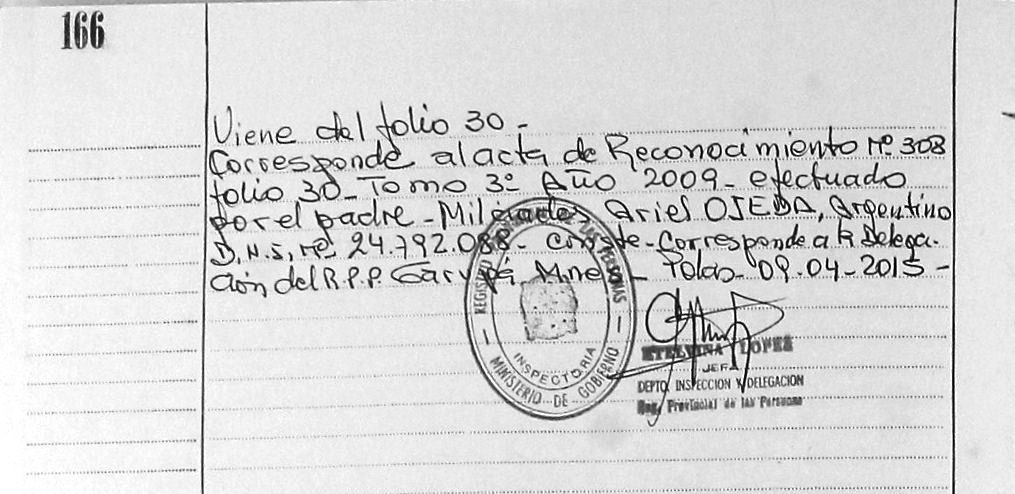 166
Viene del folio 30 -
Corresponde al acta de Reconocimiento Nº 308
folio 30 - Tomo 3º Año 2009 - efectuado
por el padre - Ariel OJEDA, Argentino
D.N.I, Nº 24.792.088 - conste - Corresponde a la Delega-
ción del R.P.P. Garupá, Mnes - Pdas - 09-04-2015 -
REGISTRO PROVINCIAL DE LAS PERSONAS
INSPECTORIA
MINISTERIO DE GOBIERNO
ETELVINA LOPEZ
JEFA
DEPTO. INSPECCION Y DELEGACION
Reg. Provincial de las Personas